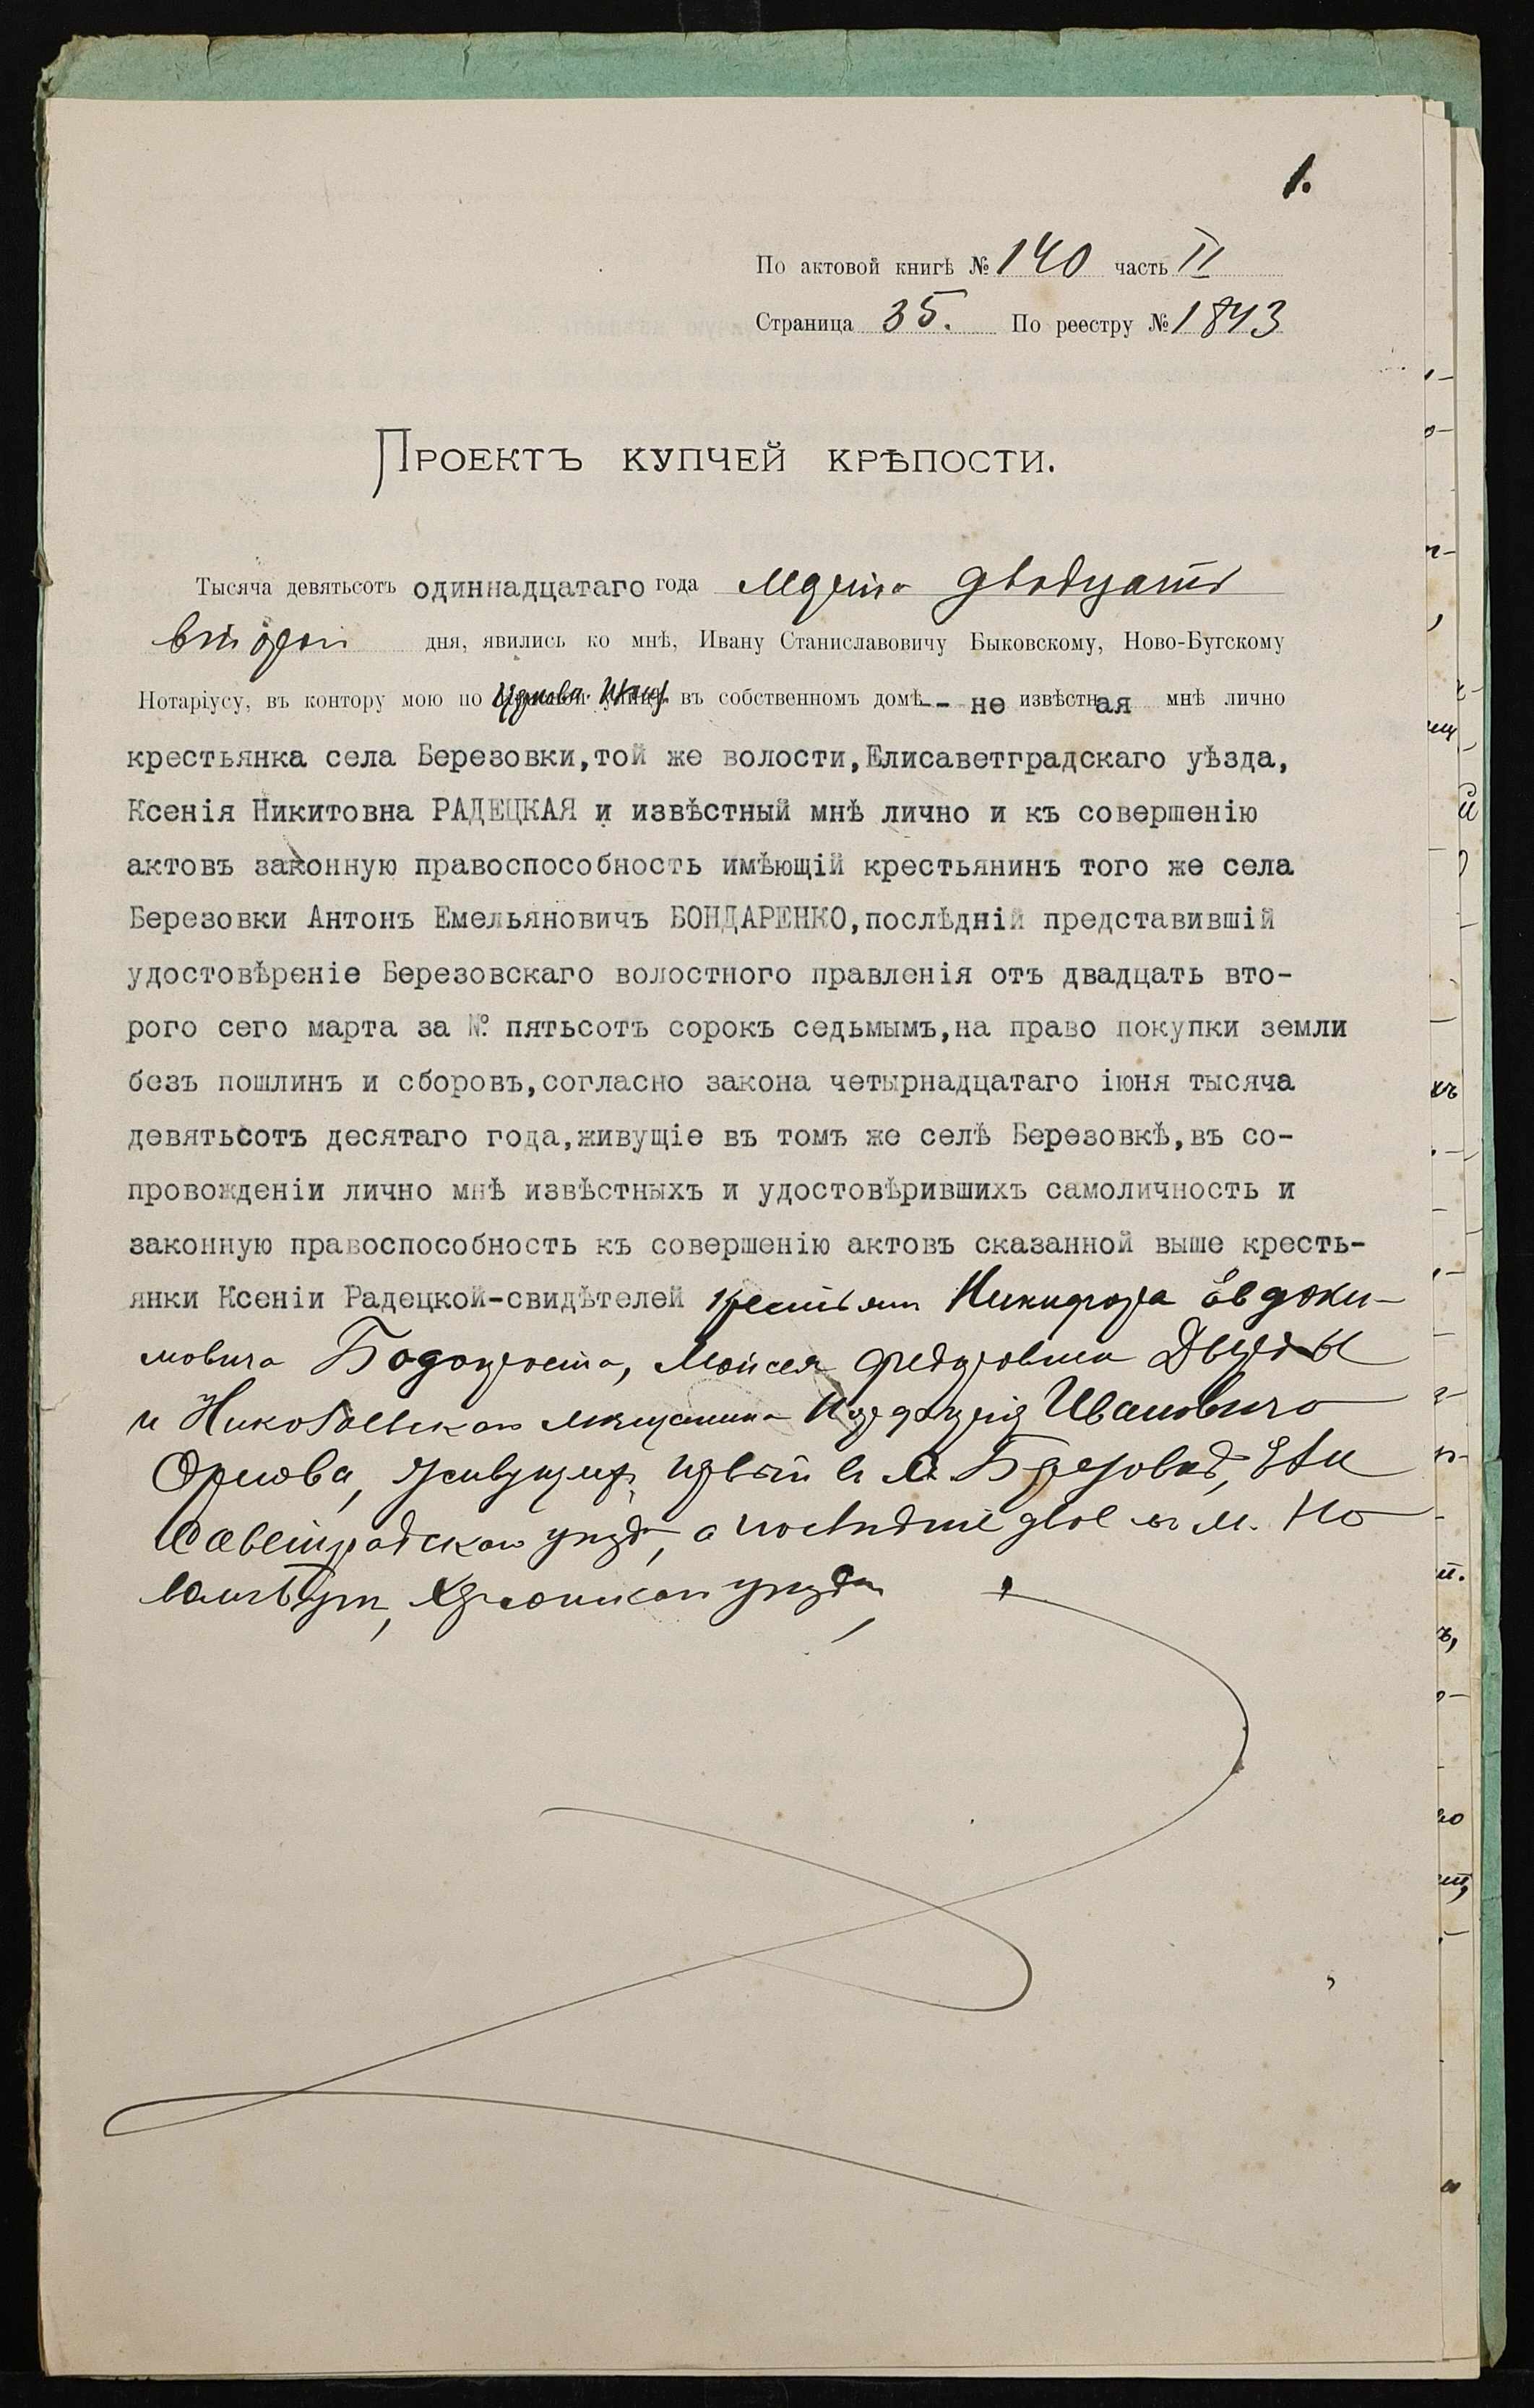 1.
По актовой книгѣ № 140 часть II
Страница 35. По реестру № 1843
Проектъ купчей крѣпости.
Тысяча девятьсотъ одиннадцатаго года Марта двадцать
второй дня, явились ко мнѣ, Ивану Станиславовичу Быковскому, Ново-Бугскому
Нотаріусу, въ контору мою по въ собственномъ домѣ -- не извѣстная мнѣ лично
крестьянка села Березовки,той же волости,Елисаветградскаго уѣзда,
Ксенія Никитовна РАДЕЦКАЯ и извѣстный мнѣ лично и къ совершенію
актовъ законную правоспособность имѣющій крестьянинъ того же села
Березовки Антонъ Емельяновичъ БОНДАРЕНКО,послѣдній представившій
удостовѣреніе Березовскаго волостного правленія отъ двадцать вто-
рого сего марта за № пятьсотъ сорокъ седьмымъ,на право покупки земли
безъ пошлинъ и сборовъ,согласно закона четырнадцатаго іюня тысяча
девятьсотъ десятаго года,живущіе въ томъ же селѣ Березовкѣ,въ со-
провожденіи лично мнѣ извѣстныхъ и удостовѣрившихъ самоличность и
законную правоспособность къ совершенію актовъ сказанной выше кресть-
янки Ксеніи Радецкой-свидѣтелей крестьян Никифора Евдоки-
мовича Мойсея Федоровича
и Николаевскаго мѣщанина Ивановича
Орлова, живущихъ, первый в с. Березовкѣ, Ели
саветградскаго уѣзда, а послѣдніе двое въ м. Но
вомъ Бугѣ, Херсонскаго уѣзда,